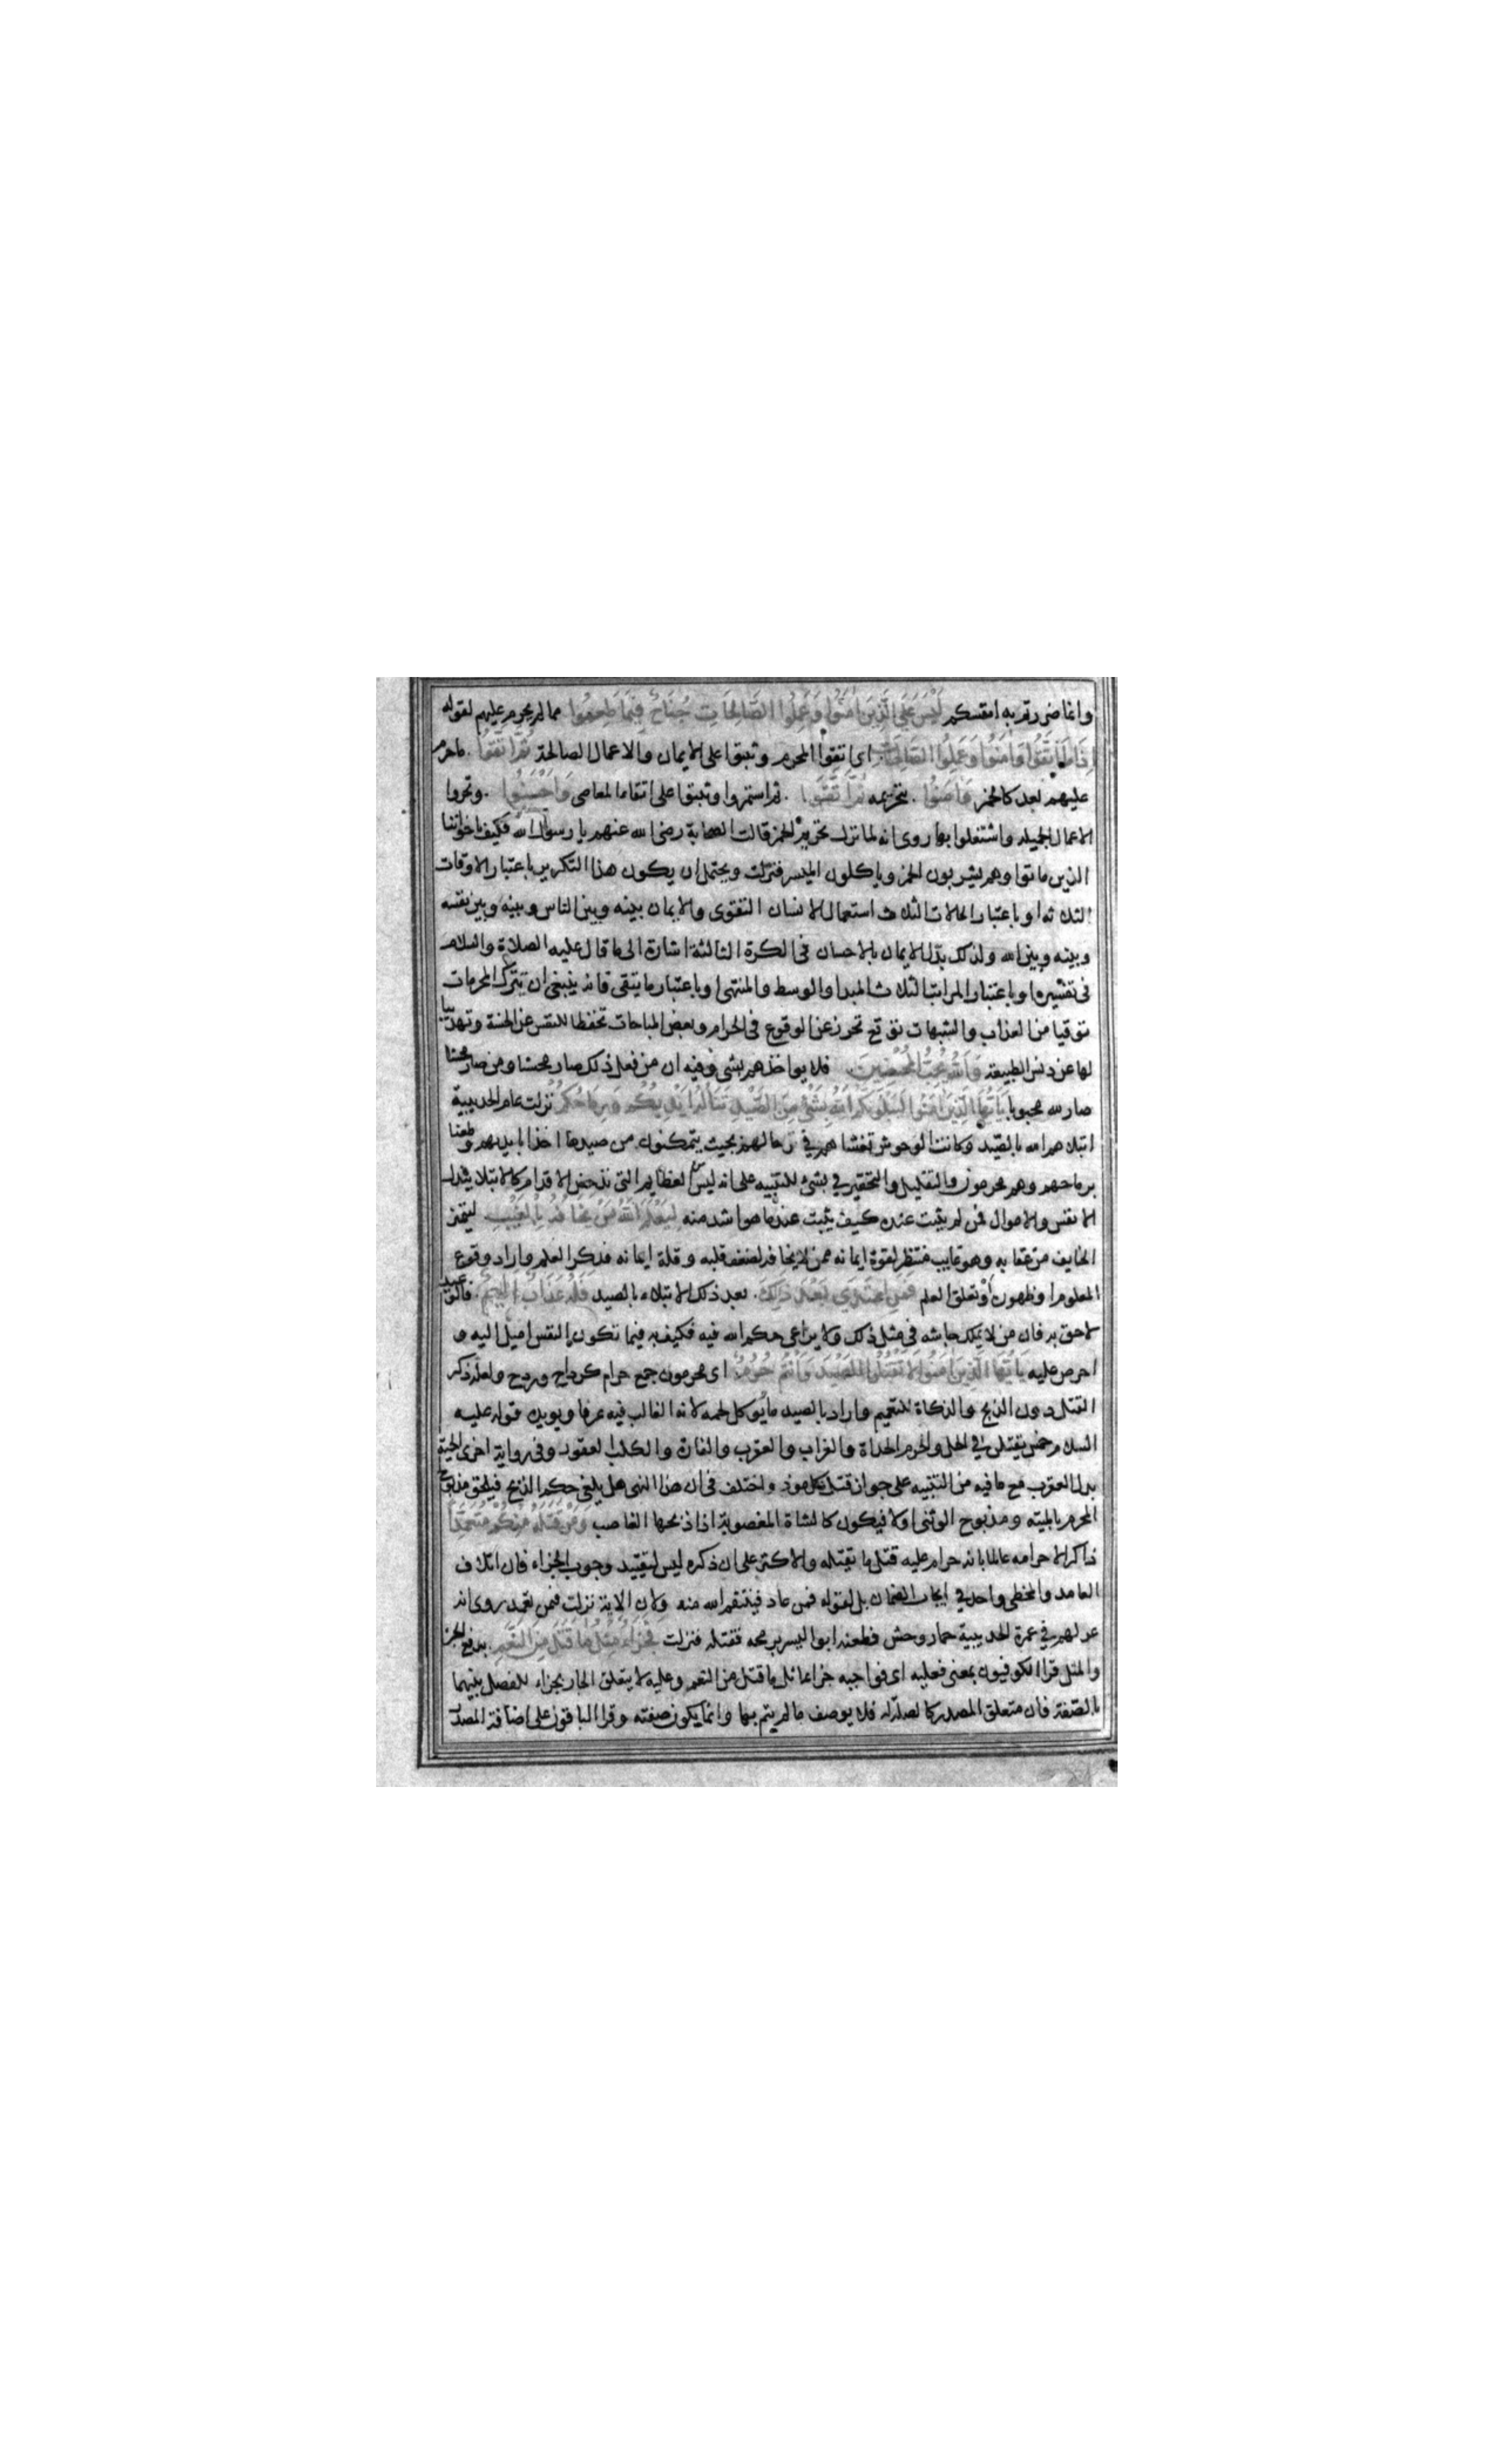 وانما ضررتم به انفسكم لَيْسَ عَلَى الَّذِينَ اٰمَنُوا وَعَمِلُوا الصَّالِحَاتِ جُنَاحٌ فِيمَا طَعِمُوا مما لم يحرم عليهم لقوله
اِذَا مَا اتَّقَوْا وَاٰمَنُوا وَعَمِلُوا الصَّالِحَاتِ اى اتقوا المحرم وثبتوا على الايمان والاعمال الصالحة ثُمَّ اتَّقَوْا ما حرم
عليهم بعد كالخمر وَاٰمَنُوا بتحريمه ثُمَّ اتَّقَوْا ثم استمروا وثبتوا على اتقاء المعاصى وَاَحْسَنُوا وتحروا
الاعمال الجميله واشتغلوا بها روى انه لما نزل تحريم الخمر قالت الصحابة رضى الله عنهم يا رسول الله فكيف باخواننا
الذين ماتوا وهم يشربون الخمر وياكلون الميسر فنزلت ويحتمل ان يكون هذا التكرير باعتبار الاوقات
الثلاثه او باعتبار الحالات الثلاث استعمال الانسان التقوى والايمان بينه وبين الناس وبينه وبين نفسه
وبينه وبين الله ولذلك بدل الايمان بالاحسان فى الكرة الثالثة اشارة الى ما قال عليه الصلاة والسلام
فى تفسيره او باعتبار المراتب الثلاث المبدا والوسط والمنتهى او باعتبار ما يتقى فانه ينبغى ان يترك المحرمات
توقيا من العذاب والشبهات تحرز عن الوقوع فى الحرام وبعض المباحات تحفظا للنفس عن الخسة وتهذيبا
لها عن دنس الطبيعة وَاللهُ يُحِبُّ الْمُحْسِنِينَ فلا يواخذهم بشى وفيه ان من فعل ذلك صار محسنا ومن صار محسنا
صار لله محبوبا يَا اَيُّهَا الَّذِينَ اٰمَنُوا لَيَبْلُوَنَّكُمُ اللهُ بِشَىْءٍ مِنَ الصَّيْدِ تَنَالُهُ اَيْدِيكُمْ وَرِمَاحُكُمْ نزلت عام الحديبية
ابتلاهم الله بالصيد وكانت الوحوش تغشاهم فى رحالهم بحيث يتمكنون من صيدها اخذا بايديهم وطعنا
برماحهم وهم محرمون والتقليل والتحقير فى بشئ للتنبيه على انه ليس من العظايم التى تدحض الاقدام كالابتلا ببذل
الانفس والاموال فمن لم يثبت عنده كيف يثبت عند ما هو اشد منه لِيَعْلَمَ اللهُ مَنْ يَخَافُهُ بِالْغَيْبِ ليتميز
الخايف من عقابه وهو غايب منتظر لقوة ايمانه ممن لا يخافه لضعف قلبه وقلة ايمانه فذكر العلم واراد وقوع
المعلوم وظهوره او تعلق العلم فَمَنِ اعْتَدٰى بَعْدَ ذٰلِكَ بعد ذلك الابتلاء بالصيد فَلَهُ عَذَابٌ اَلِيمٌ فالوعيد
لاحق به فان من لا يملك جاشه فى مثل ذلك ولا يراعى حكم الله فيه فكيف به فيما تكون النفس اميل اليه و
احرص عليه يَا اَيُّهَا الَّذِينَ اٰمَنُوا لَا تَقْتُلُوا الصَّيْدَ وَاَنْتُمْ حُرُمٌ اى محرمون جمع حرام كرداح وردح ولعله ذكر
القتل دون الذبح والذكاة للتعميم واراد بالصيد ما يوكل لحمه لانه الغالب فيه عرفا ويويده قوله عليه
السلام خمس يقتلن فى الحل والحرم الحداة والغراب والعقرب والفارة والكلب العقور وفى رواية اخرى الحية
بدل العقرب مع ما فيه من التنبيه على جواز قتل كل موذ واختلف فى ان هذا النهى هل يلغى حكم الذبح فيلحق مذبوح
المحرم بالميته ومذبوح الوثنى او لا فيكون كالشاة المغصوبة اذا ذبحها الغاصب وَمَنْ قَتَلَهُ مِنْكُمْ مُتَعَمِّدًا
ذاكر الاحرامه عالما بانه حرام عليه قتل ما يقتله والاكثر على ان ذكره ليس لتقييد وجوب الجزاء فان اتلاف
العامد والمخطى واحد فى ايجاب الضمان بل لقوله فمن عاد فينتقم الله منه ولان الاية نزلت فمن تعمد روى انه
عن لهم فى عمرة الحديبية حمار وحش فطعنه ابو اليسر برمحه فقتله فنزلت فَجَزَاءٌ مِثْلُ مَا قَتَلَ مِنَ النَّعَمِ برفع الجزا
والمثل قرا الكوفيون بمعنى فعليه اى فواجبه جزا يماثل ما قتل من النعم وعليه لا يتعلق الجار بجزاء للفصل بينهما
بالصفة فان متعلق المصدر كالصلة له فلا يوصف ما لم يتم بها وانما يكون صفته وقرا الباقون على اضافة المصدر